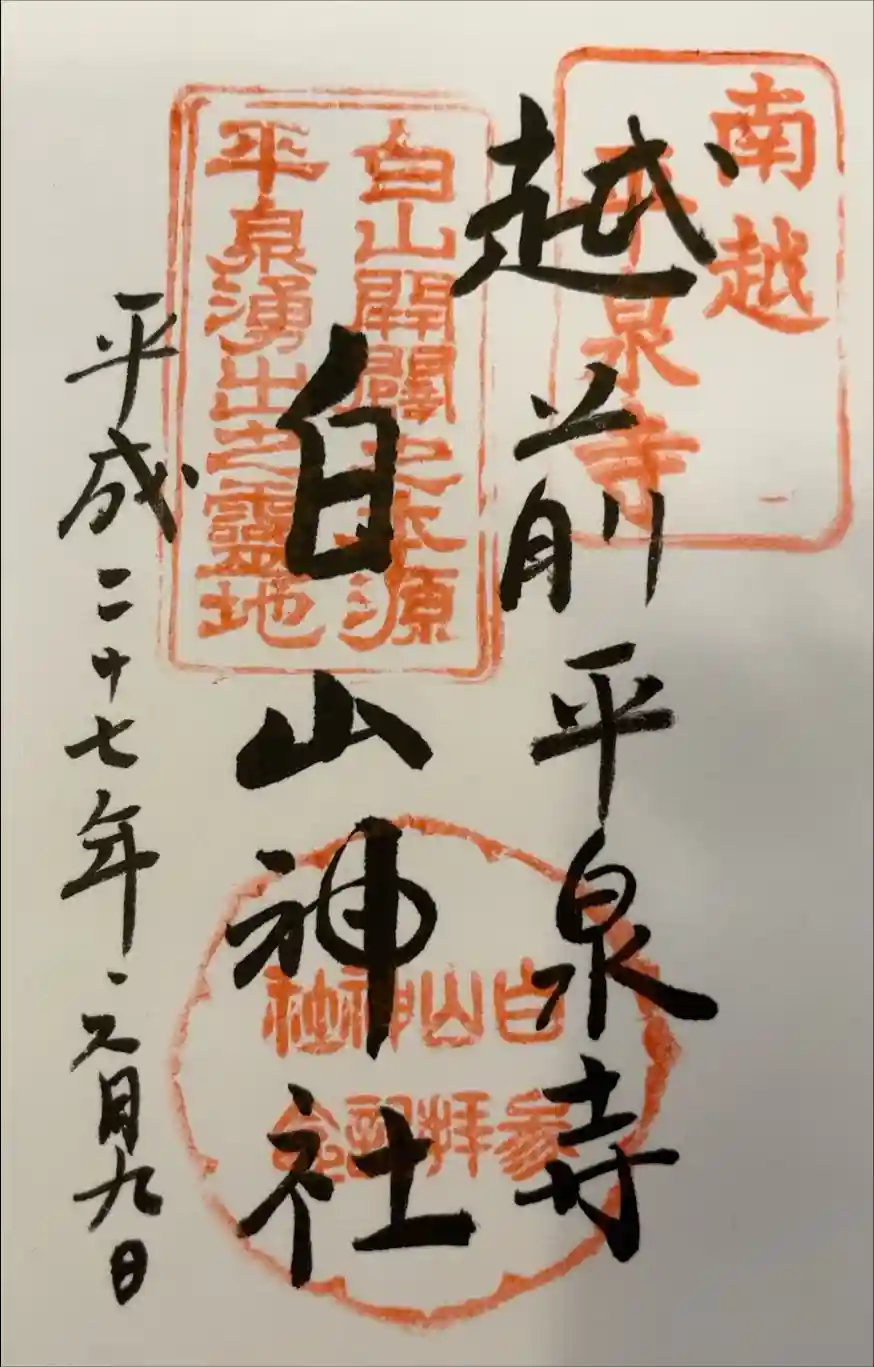 南越
平泉寺
越前平泉寺
白山開闢之本源
平泉湧出之靈地
白山神社
白山神社
參拜記念
平成二十七年六月九日